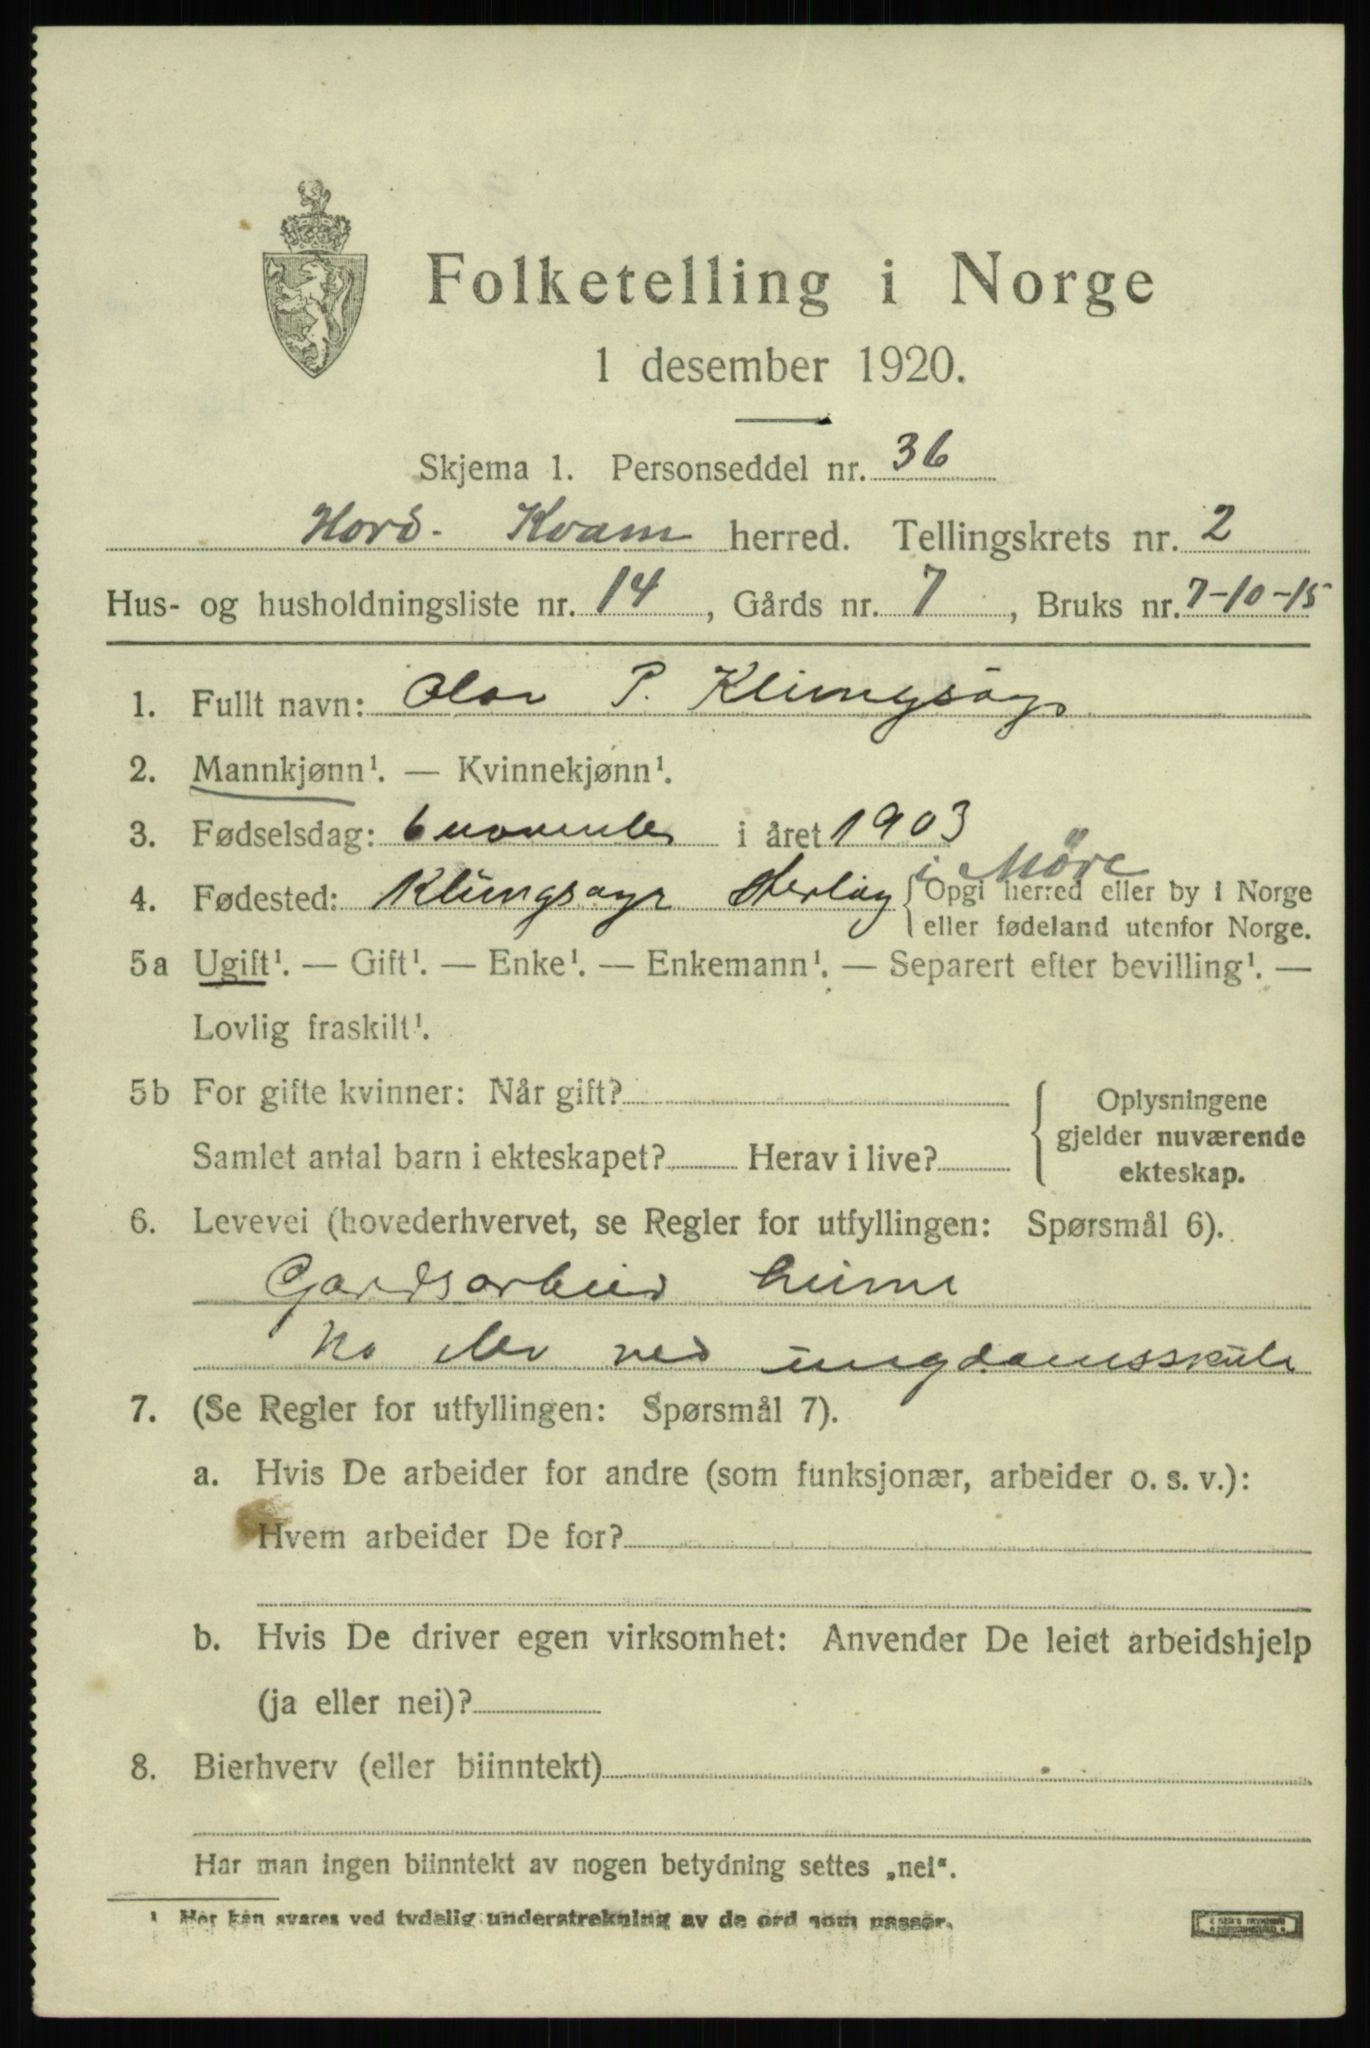 Folketelling i Norge
1 desember 1920.
Skjema 1. Personseddel nr. 36
Nord- Kvam herred. Tellingskrets nr. 2
Hus- og husholdningsliste nr. 14, Gårds nr. 7, Bruks nr. 7-10-15
1. Fullt navn: Olav P. Klungsöyr
2. Mannkjønn¹. — Kvinnekjønn¹.
3. Fødselsdag: 6 november i året 1903
i Möre
4. Fødested: Klungsöyr Heröy { Opgi herred eller by i Norge
eller fødeland utenfor Norge.
5a Ugift¹. — Gift¹. — Enke¹. — Enkemann¹. — Separert efter bevilling¹. —
Lovlig fraskilt¹.
5b For gifte kvinner: Når gift?
Samlet antal barn i ekteskapet? Herav i live?
Oplysningene
gjelder nuværende
ekteskap.
6. Levevei (hovederhvervet, se Regler for utfyllingen: Spørsmål 6).
Gardsarbeid heime
No elev ved ungdomsskule
7. (Se Regler for utfyllingen: Spørsmål 7).
a. Hvis De arbeider for andre (som funksjonær, arbeider o. s. v.):
Hvem arbeider De for?
b. Hvis De driver egen virksomhet: Anvender De leiet arbeidshjelp
(ja eller nei)?
8. Bierhverv (eller biinntekt)
Har man ingen biinntekt av nogen betydning settes „nei“.
¹ Her kan svares ved tydelig understrekning av de ord som passer.